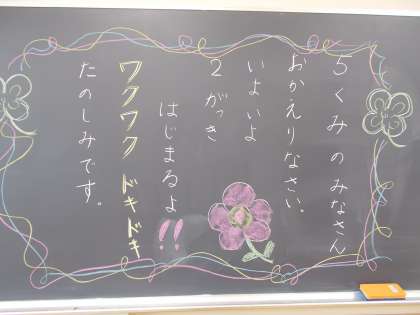 5くみのみなさん
おかえりなさい。
いよいよ
2がっき
はじまるよ!!
ワクワク ドキドキ
たのしみです。